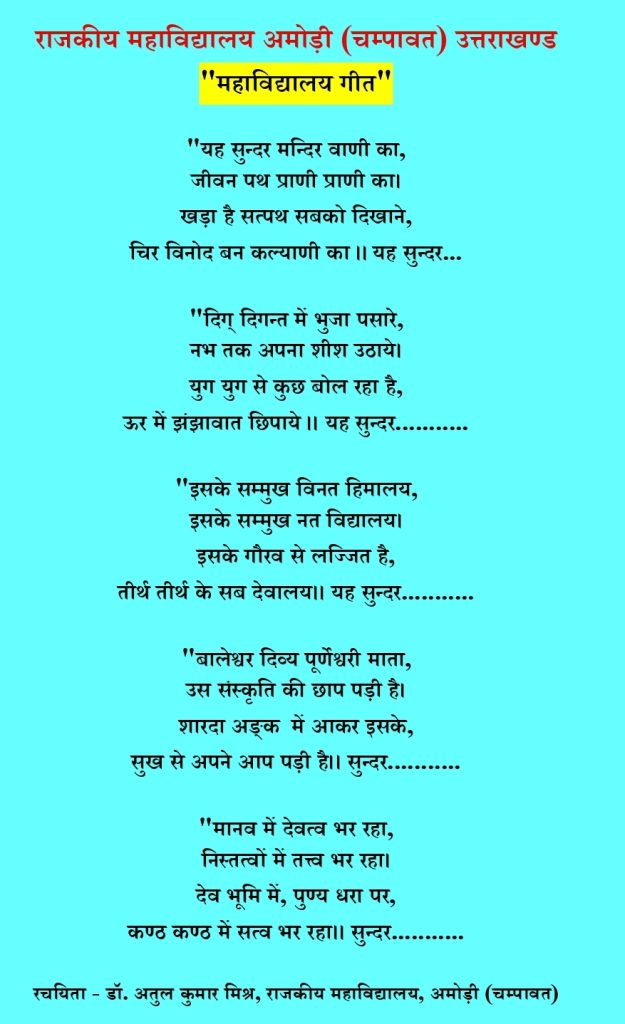 राजकीय महाविद्यालय अमोड़ी (चम्पावत) उत्तराखण्ड
"महाविद्यालय गीत"
"यह सुन्दर मन्दिर वाणी का,
जीवन पथ प्राणी प्राणी का।
खड़ा है सत्पथ सबको दिखाने,
चिर विनोद बन कल्याणी का।। यह सुन्दर...
"दिग् दिगन्त में भुजा पसारे,
नभ तक अपना शीश उठाये।
युग युग से कुछ बोल रहा है,
ऊर में झंझावात छिपाये।। यह सुन्दर...........
"इसके सम्मुख विनत हिमालय,
इसके सम्मुख नत विद्यालय।
इसके गौरव से लज्जित है,
तीर्थ तीर्थ के सब देवालय।। यह सुन्दर...........
"बालेश्वर दिव्य पूर्णेश्वरी माता,
उस संस्कृति की छाप पड़ी है।
शारदा अङ्क में आकर इसके,
सुख से अपने आप पड़ी है।। सुन्दर...........
"मानव में देवत्व भर रहा,
निस्तत्वों में तत्त्व भर रहा।
देव भूमि में, पुण्य धरा पर,
कण्ठ कण्ठ में सत्व भर रहा।। सुन्दर...........
रचयिता - डॉ. अतुल कुमार मिश्र, राजकीय महाविद्यालय, अमोड़ी (चम्पावत)